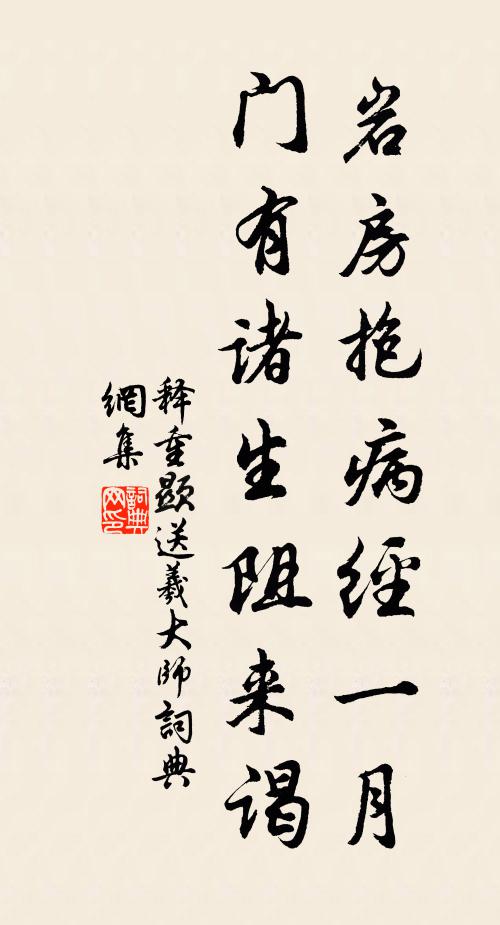 岩房抱病經一月
门有诸生阻来谒
释重顯送羲大师詞典
網集
詞典
网印